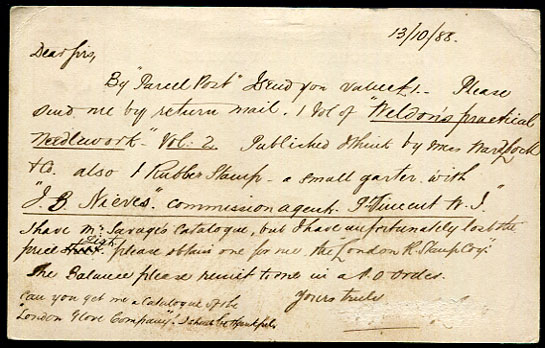 13/10/88.
Dear Sirs,
By "Parcel Post" I send you value £1.- Please
send me by return mail. 1 Vol of "Weldon's practical
Needlework" Vol. 2. Published I think by Mess Ward Lock
& Co. also 1 Rubber Stamp - a small garter with
"J. B Nieves". commission agent. St Vincent W. I."
I have Mr Savage's Catalogue, but I have unfortunately lost the
price list. please obtain one for me the London R. Stamp Coy".
The Balance please remit to me in a P.O Order.
Can you get me a Catalogue of the Yours truly
"London Glove Company"? I should be thankful.